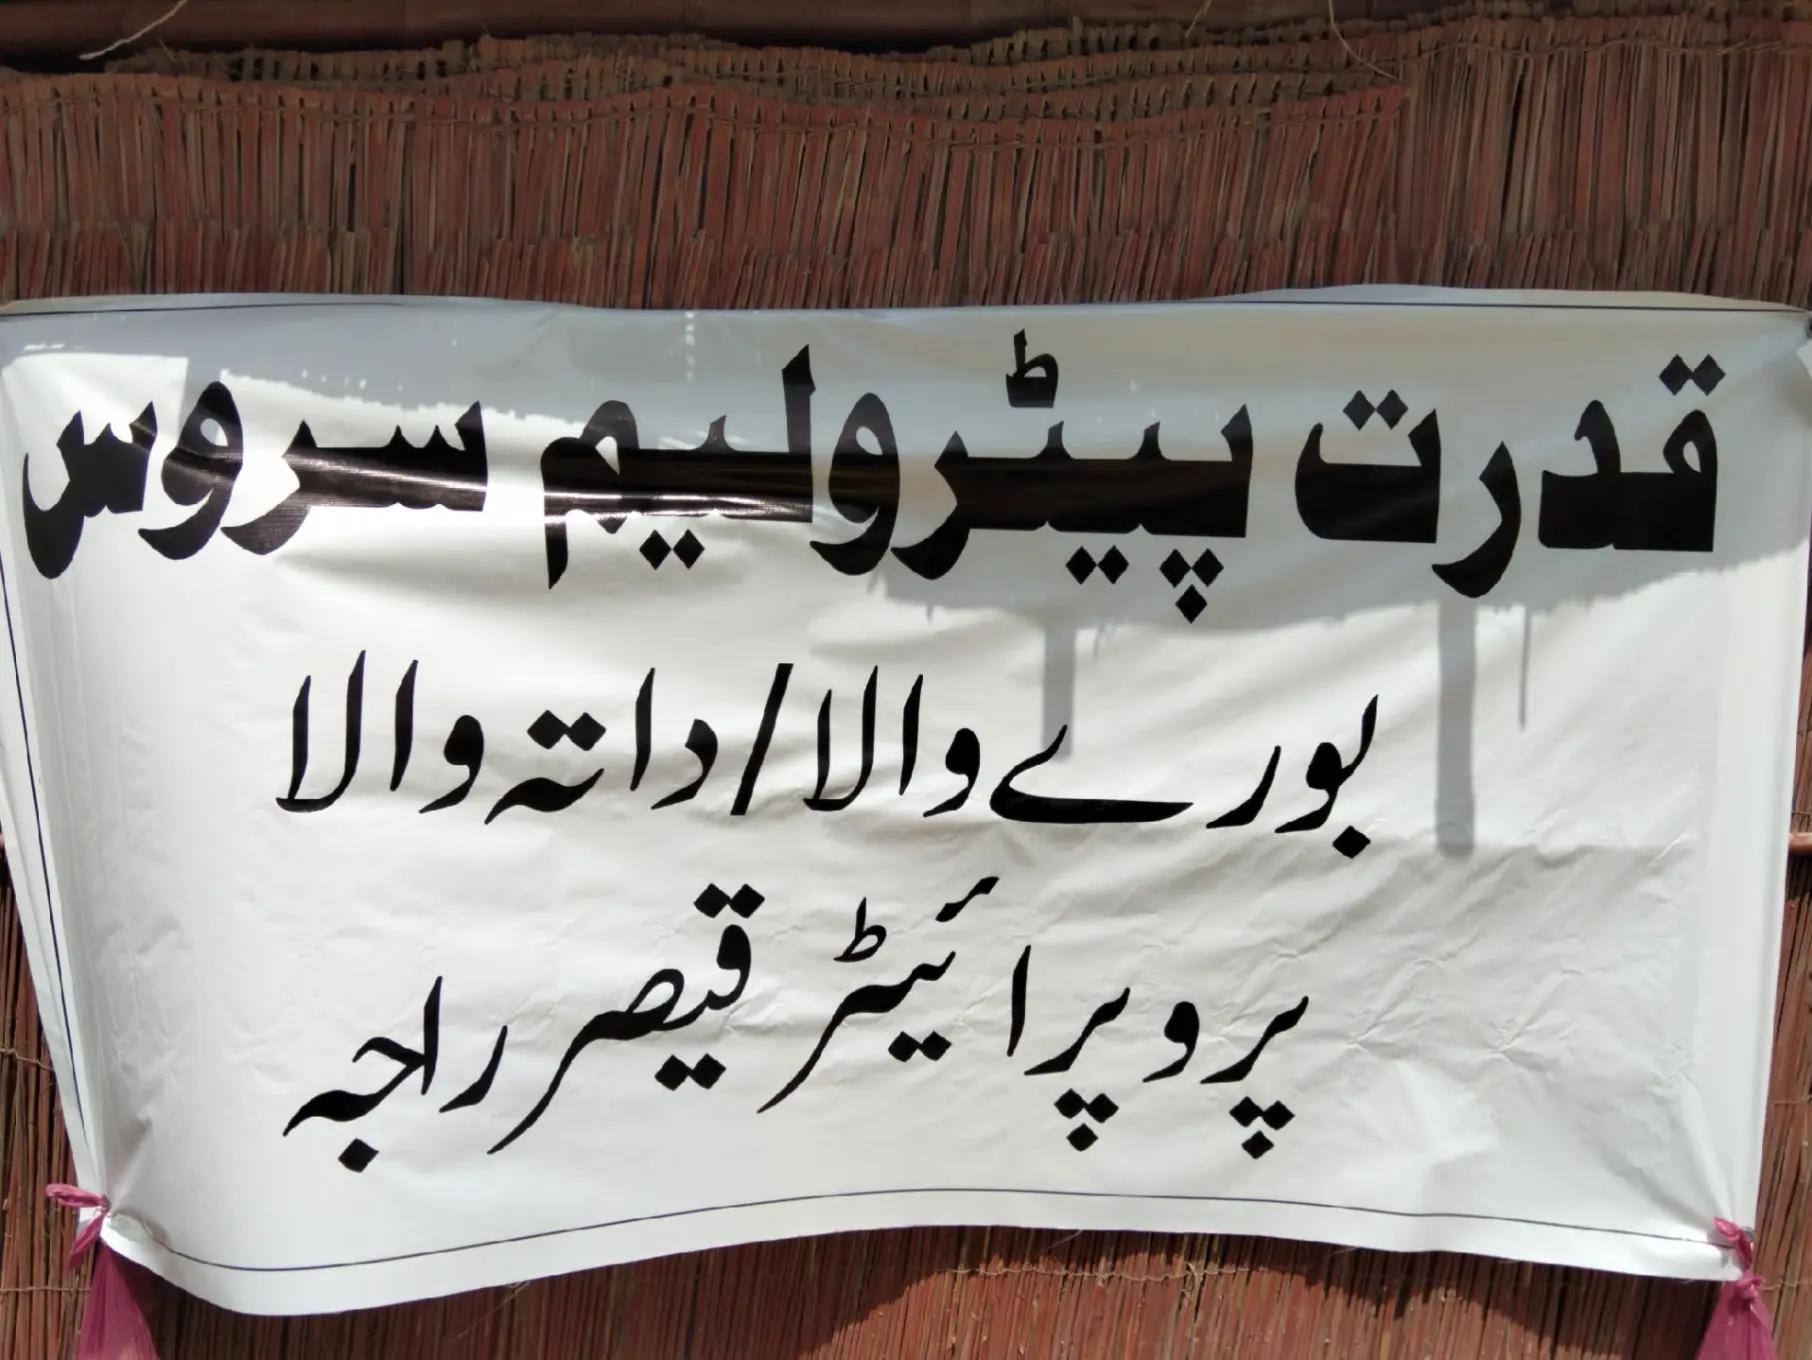 قدرت پیٹرولیم سروس
بورے والا/داتہ والا
پروپرائیٹر قیصر راجہ